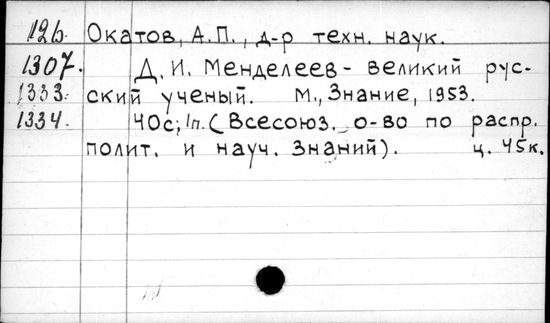 126. Окатов, А.П., д-р техн. наук.
1307. Д. И. Менделеев - великий рус-
1333. ский ученый. М., Знание, 1953.
1334. 40с; 1п. (Всесоюз. о-во по распр.
полит. и науч. знаний). ц. 45к.